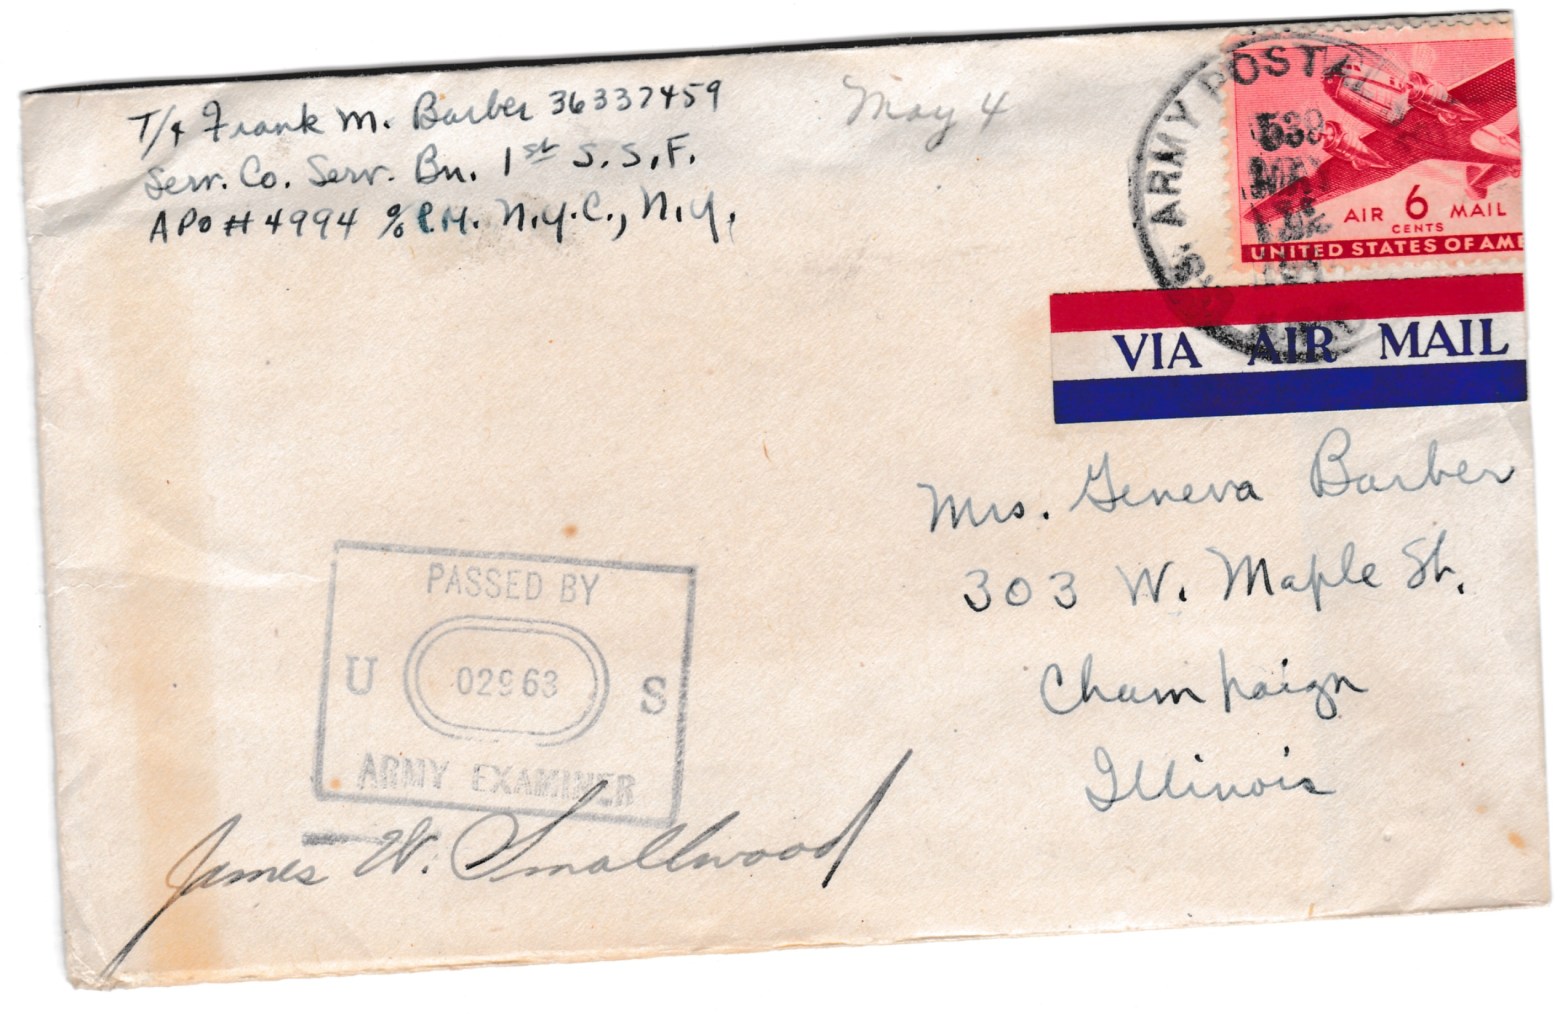 T/4 Frank M. Barber 36337459
Serv. Co. Serv. Bn. 1st S.S.F.
APO # 4994 c/o P.M. N.Y.C., N.Y.
May 4
U.S. ARMY POSTAL
AIR 6 MAIL
CENTS
UNITED STATES OF AME
VIA AIR MAIL
Mrs. Geneva Barber
303 W. Maple St.
Champaign
Illinois
PASSED BY
U 02963 S
ARMY EXAMINER
James W. Smallwood